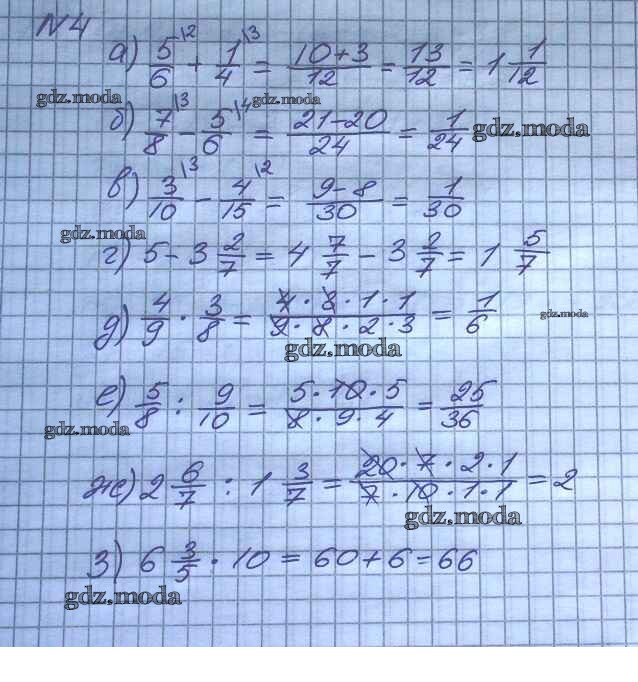 N 4
а) 5/6 \2 + 1/4 \3 = 10+3/12 = 13/12 = 1 1/12
gdz.moda gdz.moda
б) 7/8 \3 - 5/6 \4 = 21-20/24 = 1/24 gdz.moda
в) 3/10 \3 - 4/15 \2 = 9-8/30 = 1/30
gdz.moda
г) 5 - 3 2/7 = 4 7/7 - 3 2/7 = 1 5/7
д) 4/9 · 3/8 = 4·8·1·1/9·8·2·3 = 1/6 gdz.moda
gdz.moda
е) 5/8 : 9/10 = 5·10·5/8·9·4 = 25/36
gdz.moda
ж) 2 6/7 : 1 3/7 = 20·7·2·1/7·10·1·1 = 2
gdz.moda
з) 6 3/5 · 10 = 60+6=66
gdz.moda